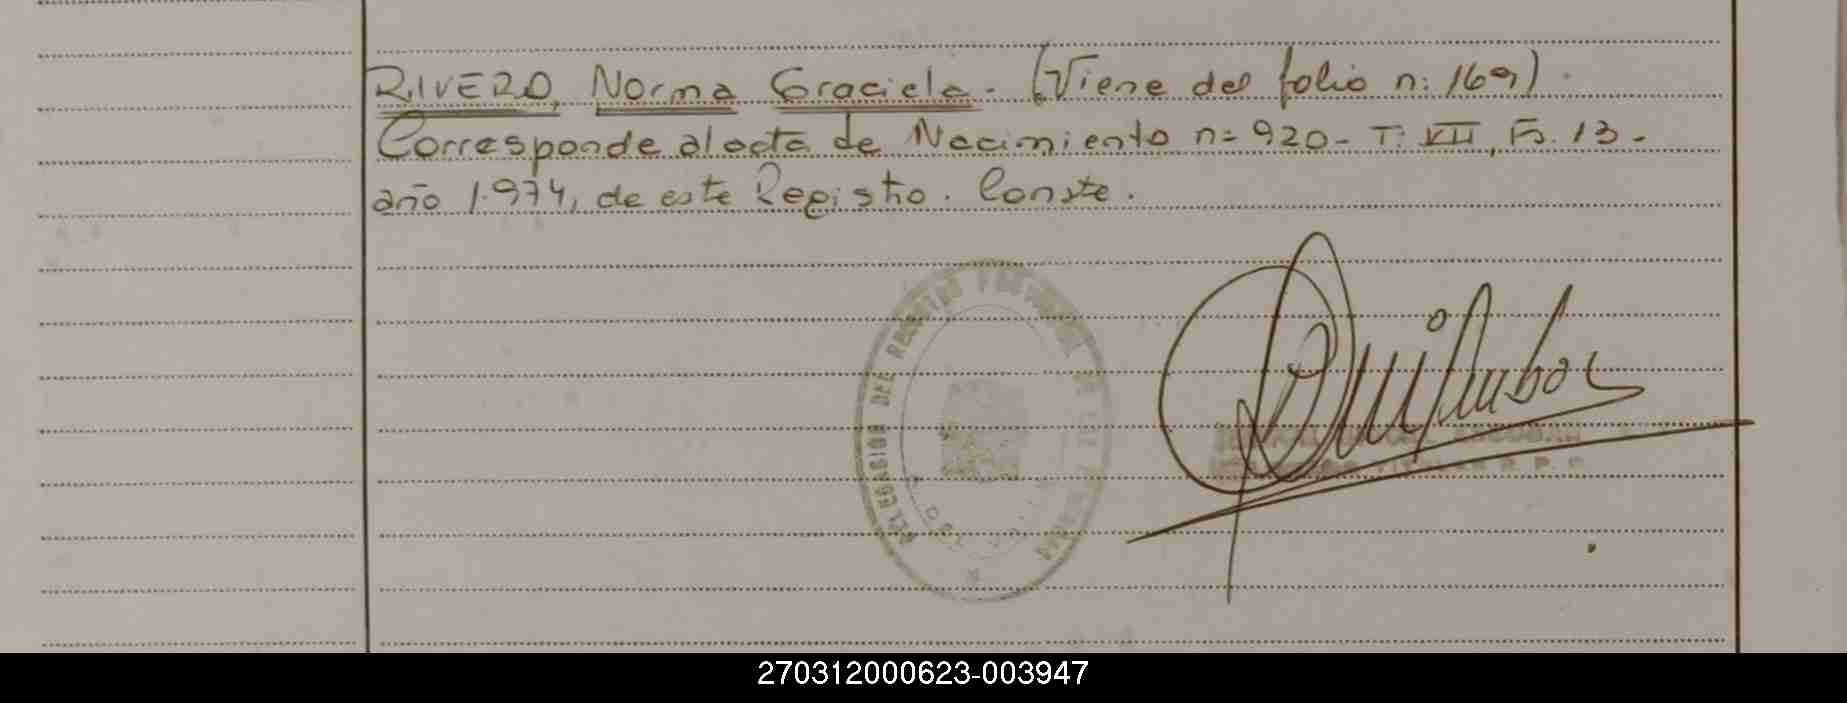 RIVERO, Norma Graciela. (Viene del folio n: 169).
Corresponde al acta de Nacimiento n= 920 - T: VII, Fs. 13 -
año 1.974, de este Registro. Conste.
DELEGACION DEL REGISTRO PROVINCIAL DE LAS PERSONAS
TITULAR R. P. P.
270312000623-003947